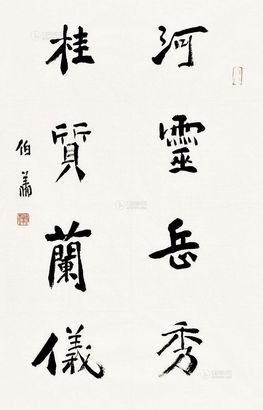 河靈岳秀
桂質蘭儀
伯蕭